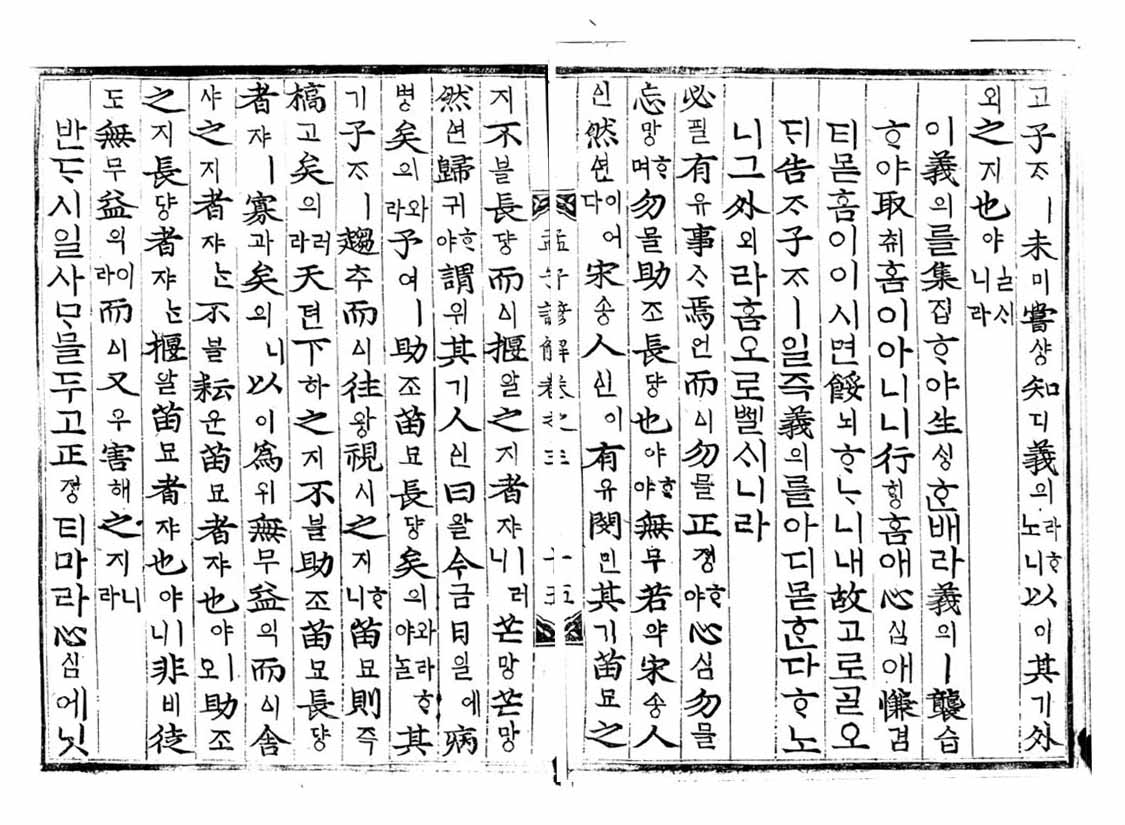 고子ᄌᆞㅣ未미嘗샹知디義의라ᄒᆞ노니以이其기外
외之지也야ᄂᆞᆯ시니라
이義의를集집ᄒᆞ야生ᄉᆡᆼᄒᆞᆫ배라義의ㅣ襲습
ᄒᆞ야取ᄎᆔ홈이아니니行ᄒᆡᆼ홈애心심애慊겸
티몯홈이이시면餒뇌ᄒᆞᄂᆞ니내故고로ᄀᆞᆯ오
ᄃᆡ告고子ᄌᆞㅣ일즉義의를아디몯ᄒᆞᆫ다ᄒᆞ노
니그外외라홈오로ᄡᅦᆯᄉᆡ니라
必필有유事ᄉᆞ焉언而ᅀᅵ勿믈正졍ᄒᆞ야心심勿믈
忘망ᄒᆞ며勿믈助조長댱也야ᄒᆞ야無무若약宋송人
ᅀᅵᆫ然ᅀᅧᆫ이어다宋송人ᅀᅵᆫ이有유閔민其기苗묘之
孟子諺解卷之三 十五
지不블長댱而ᅀᅵ揠알之지者쟈ㅣ러니芒망芒망
然ᅀᅧᆫ歸귀ᄒᆞ야謂위其기人ᅀᅵᆫ曰왈今금日일에病
병矣의와라予여ㅣ助조苗묘長댱矣의와라ᄒᆞ야ᄂᆞᆯ其
기子ᄌᆞㅣ趨추而ᅀᅵ往왕視시之지ᄒᆞ니苗묘則즉
槁고矣의러라天텬下하之지不블助조苗묘長댱
者쟈ㅣ寡과矣의니以이爲위無무益익而ᅀᅵ舍
샤之지者쟈ᄂᆞᆫ不블耘운苗묘者쟈也야ㅣ오助조
之지長댱者쟈ᄂᆞᆫ揠알苗묘者쟈也야ㅣ니非비徒
도無무益익이라而ᅀᅵ又우害해之지니라
반ᄃᆞ시일사ᄆᆞᆷ믈두고正졍티마라心심에닛